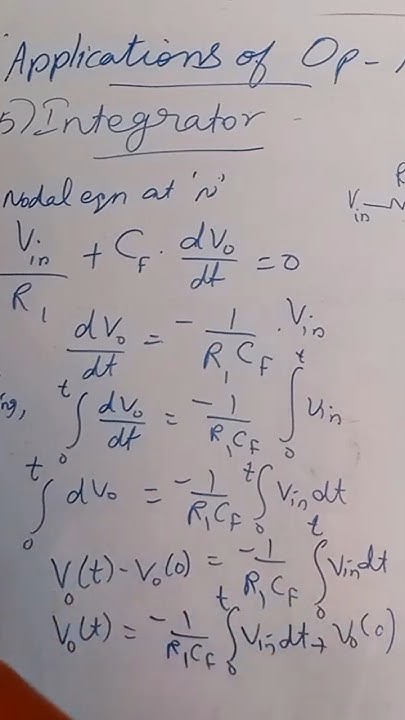 Applications of Op-
5) Integrator -
Nodal eqn at 'N'
V_in/R_1 + C_F . dV_o/dt = 0
V_in
R
dV_o/dt = -1/(R_1 C_F) . V_in
ng, ∫_0^t dV_o/dt = -1/(R_1 C_F) ∫_0^t V_in
∫_0^t dV_o = -1/(R_1 C_F) ∫_0^t V_in dt
V_o(t) - V_o(0) = -1/(R_1 C_F) ∫_0^t V_in dt
V_o(t) = -1/(R_1 C_F) ∫_0^t V_in dt + V_o(0)